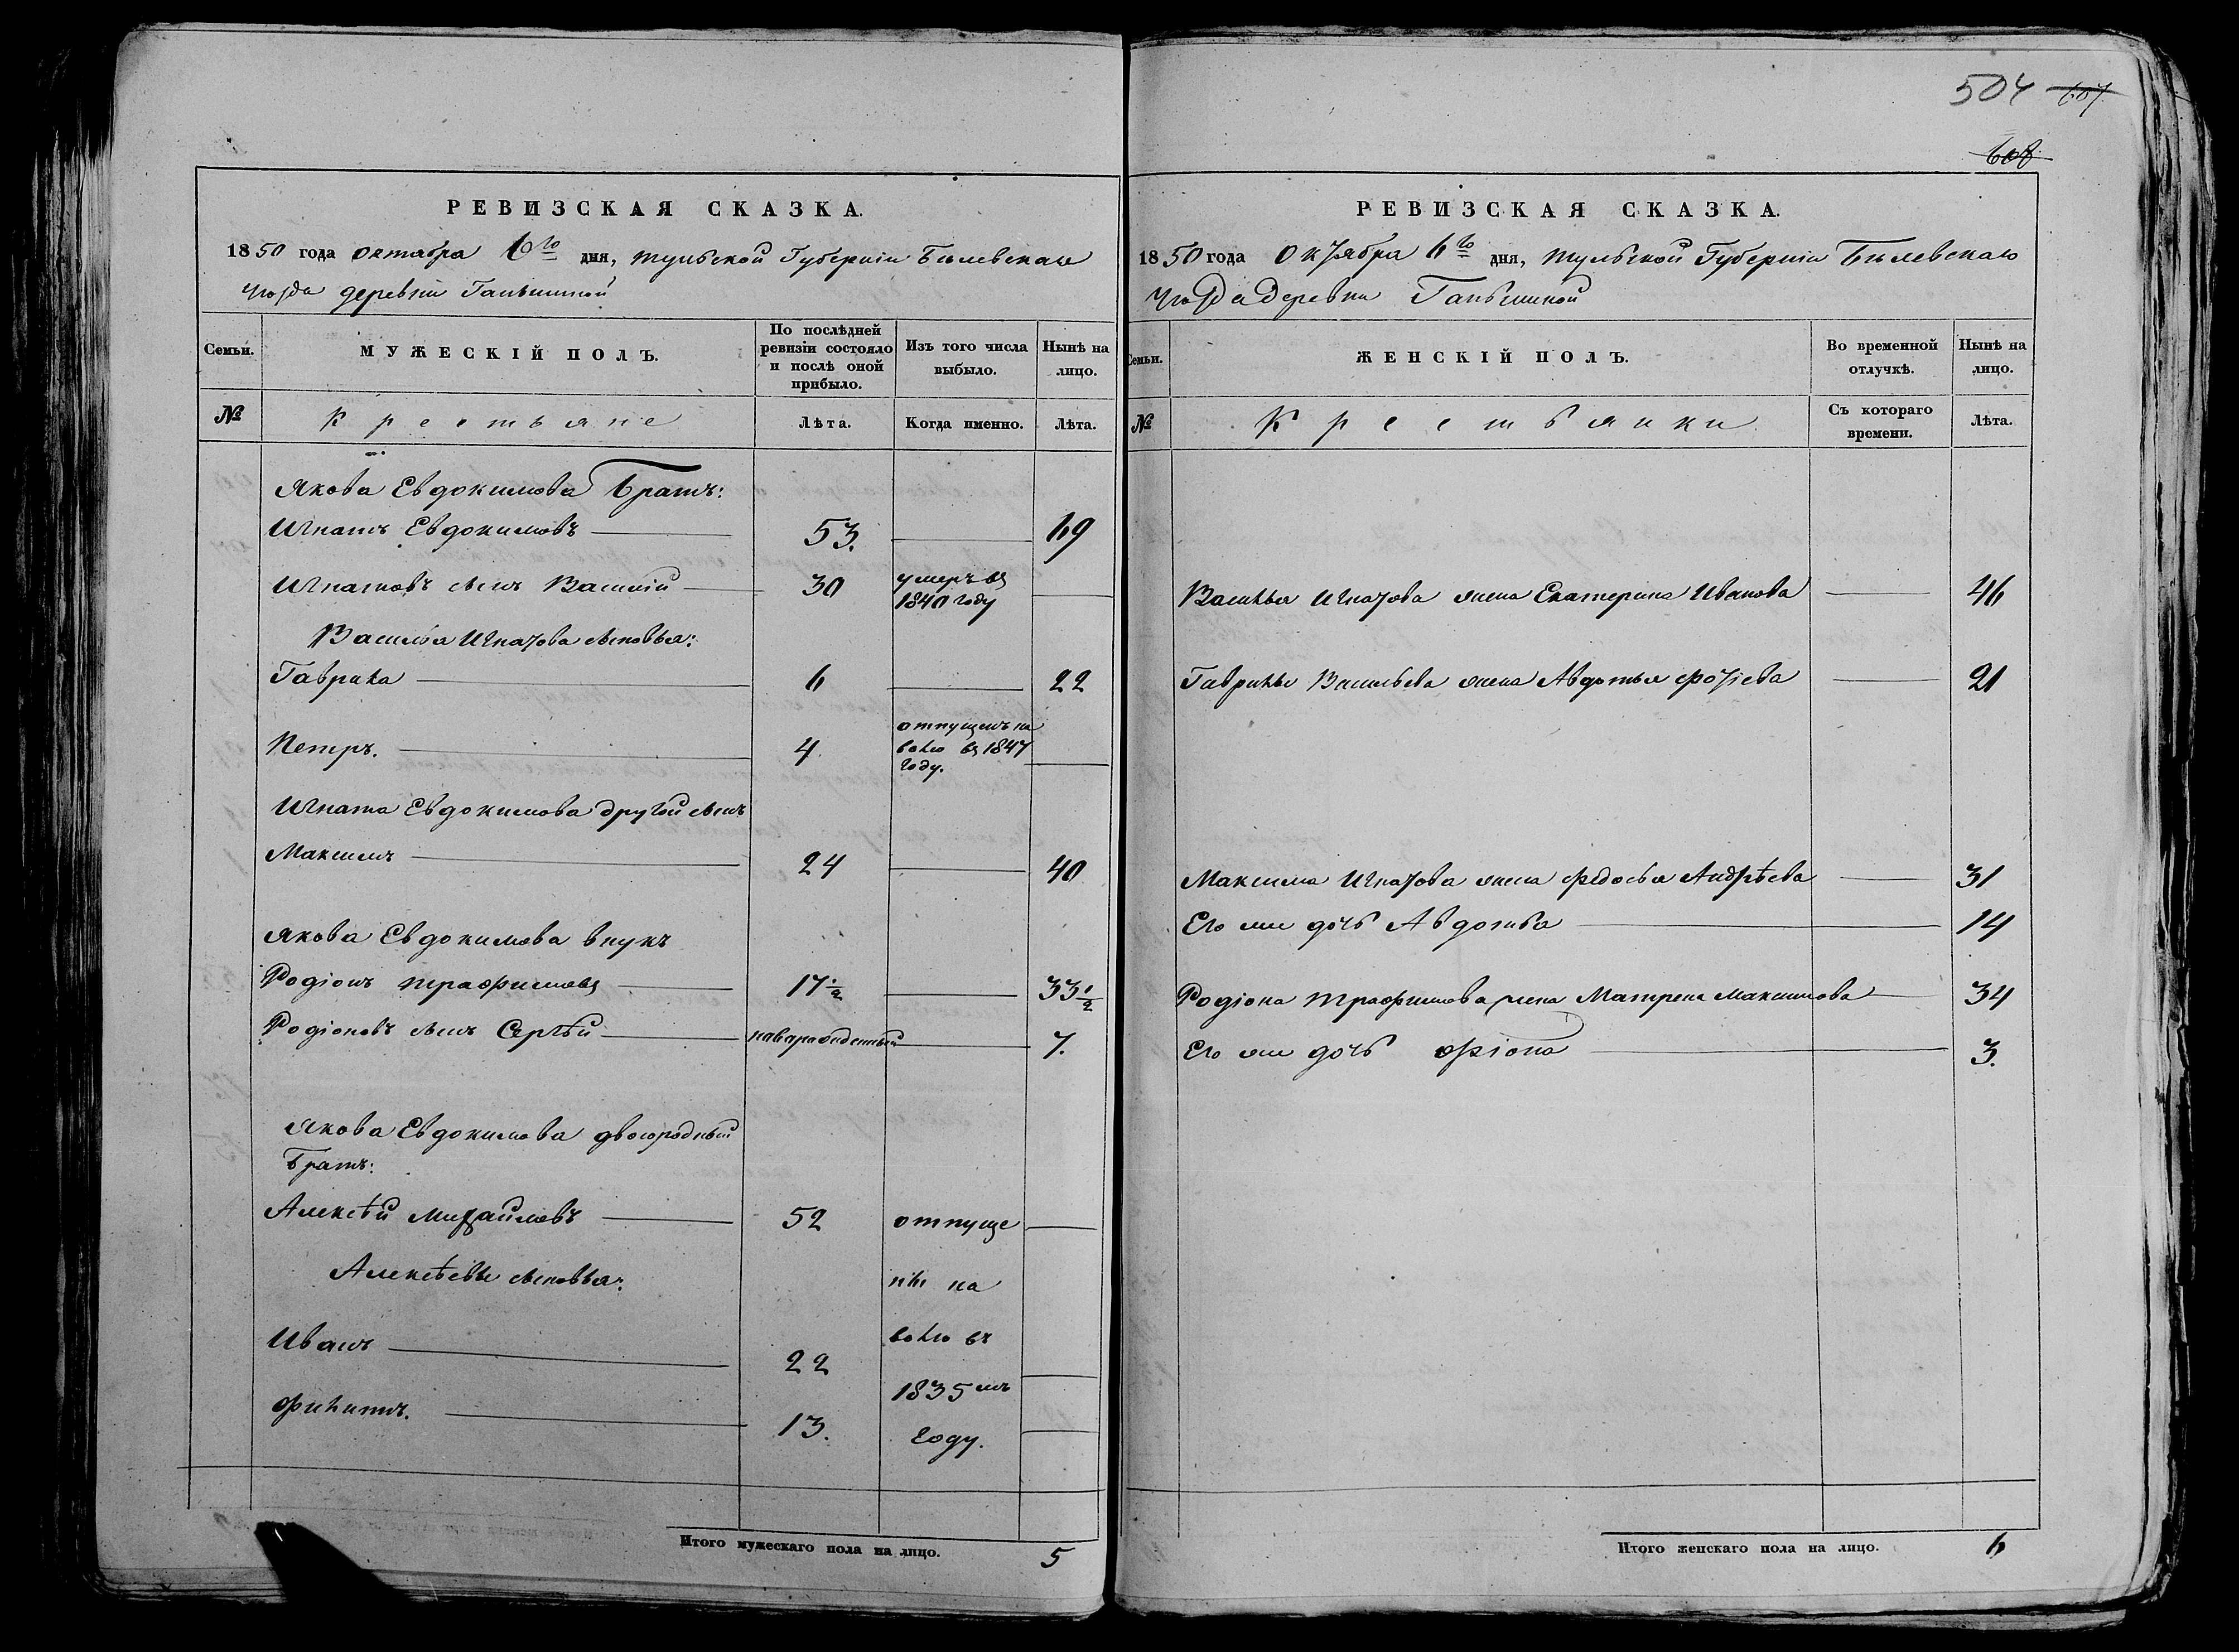 504 607
608
РЕВИЗСКАЯ СКАЗКА.
1850 года октабра 6го дня, тульской Губерніи Бѣлевскаго
уезда деревни Ганьшиной
Семьи.
МУЖЕСКІЙ ПОЛЪ.
По послѣдней ревизіи состояло и послѣ оной прибыло.
Изъ того числа выбыло.
Нынѣ на лицо.
№
Крестьяне
Лѣта.
Когда именно.
Лѣта.
Якова Евдокимова братъ:
Игнатъ Евдокимовъ 53. 69
Игнатовъ сынъ Василій 30 умеръ въ 1840 году
Василья Игнатова сыновья:
Гаврила 6 22
Петръ. 4 отпущенъ на волю въ 1847 году.
Игната Евдокимова другой сынъ
Максимъ 24 40
Якова Евдокимова внукъ
Родіонъ трафимовъ 17 1/2 33 1/2
Родіоновъ сынъ Сергѣй наварожденный 7.
Якова Евдокимова двоюродный
Братъ:
Алексѣй Михайловъ 52 отпуще
Алексѣевы сыновья: ны на
Иванъ 22 волю въ
1835мъ
Филипъ. 13. году.
Итого мужескаго пола на лицо. 5
РЕВИЗСКАЯ СКАЗКА.
1850 года Октября 6го дня, тульской Губерніи Бѣлевскаго
уезда деревни Ганьшиной
Семьи.
ЖЕНСКІЙ ПОЛЪ.
Во временной отлучкѣ.
Нынѣ на лицо.
№
Крестьянки
Съ котораго времени.
Лѣта.
Василья Игнатова жена Екатерина Иванова 46
Гаврилы Васильева жена Авдотья Фотіева 21
Максима Игнатова жена Федосья Андрѣева 31
Его же дочь Авдотья 14
Родіона трафимова жена Матрена Максимова 34
Его же дочь Фіона 3.
Итого женскаго пола на лицо. 6